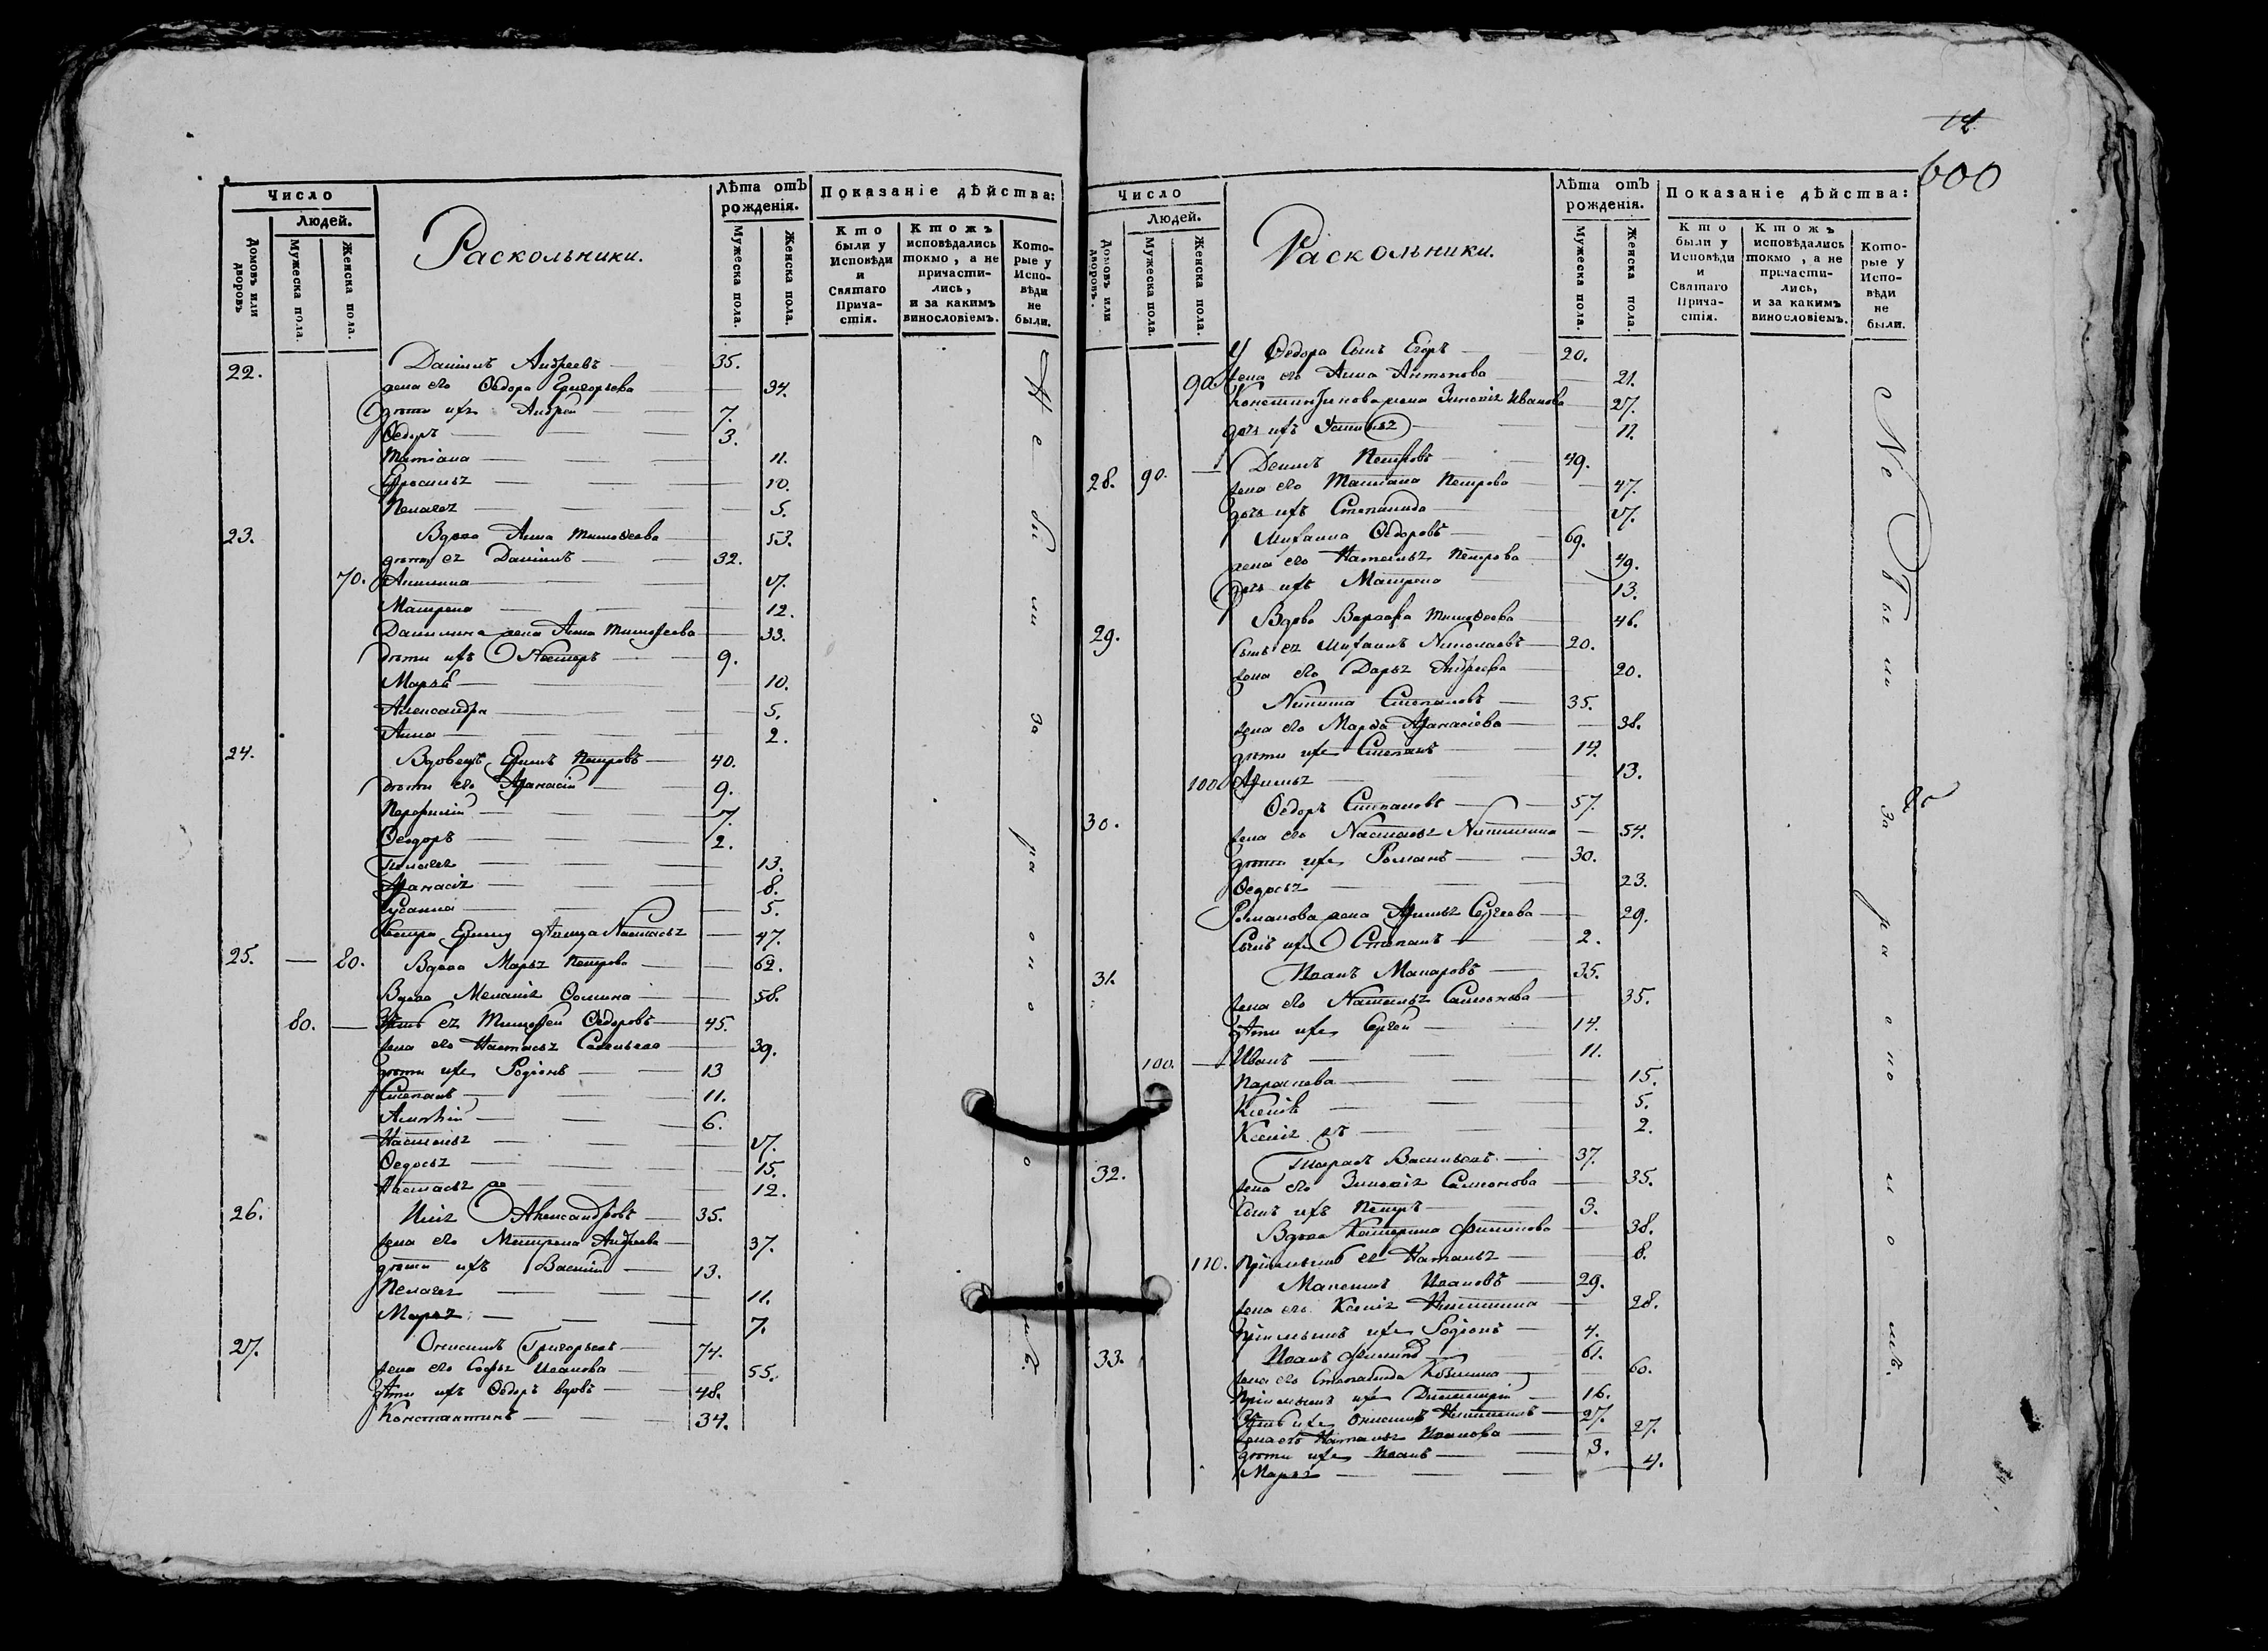 Число
Людей.
Домовъ или дворовъ
Мужеска пола.
Женска пола.
Раскольники.
Лѣта отъ рожденія.
Мужеска пола.
Женска пола.
Показаніе дѣйства:
Кто были у Исповѣди и Святаго Прича-стія.
Ктожъ исповѣдались токмо, а не причасти-лись, и за какимъ винословіемъ.
Кото-рые у Испо-вѣди не были.
22. Даніилъ Андреевъ 35.
жена его Ѳедора Григорьева 34.
дѣти ихъ Андрей 7.
Ѳедоръ 3.
Татіана 11.
10.
Пелагея 5.
23. Вдова Анна Тимоѳеева 53.
дѣти ея Даніилъ 32.
70. Акилина 17.
Матрена 12.
Данилина жена Анна Тимофеева 33.
дѣти ихъ Несторъ 9.
Марья 10.
Александра 5.
Анна 2.
24. Вдовецъ Ефимъ Петровъ 40.
дѣти его Афанасій 9.
Перфилій 7.
Ѳеодоръ 2.
Пелагея 13.
Афанасія 8.
Сусанна 5.
сестра Ефиму девица Настасья 47.
25. — 80. Вдова Марья Петрова 62.
Вдова Меланія Ѳомина 58.
80. — Зять ея Тимофей Ѳедоровъ 45.
жена его Настасья Савельева 39.
дѣти ихъ Родіонъ 13
Степанъ 11.
6.
Настасья 17.
Ѳедосья 15.
Настасья 12.
26. Илія Александровъ 35.
жена его Матрена Андреева 37.
дѣти ихъ Василій 13.
Пелагея 11.
Марья 7.
27. Онисимъ Григорьевъ 74.
жена его Софья Иванова 55.
дѣти ихъ Ѳедоръ вдовъ 48.
Константинъ 34.
Не были за расколомъ.
14
600
Число
Людей.
Домовъ или дворовъ.
Мужеска пола.
Женска пола.
Раскольники.
Лѣта отъ рожденія.
Мужеска пола.
Женска пола.
Показаніе дѣйства:
Кто были у Исповѣди и Святаго Прича-стія.
Ктожъ исповѣдались токмо, а не причасти-лись, и за какимъ винословіемъ.
Кото-рые у Испо-вѣди не были.
У Ѳедора Сынъ Егоръ 20.
90. жена его Анна Антонова 21.
Константинова жена Зиновія Иванова 27.
дочь ихъ 11.
28. 90. — Петровъ 49.
жена его Татіана Петрова 47.
дочь ихъ Степанида 17.
Михаила Ѳедоровъ 69.
жена его Наталья Петрова 49.
дочь ихъ Матрена 13.
29. Вдова Варвара Тимоѳеева 46.
Сынъ ея Михаилъ Николаевъ 20.
жена его Дарья Андреева 20.
Никита Степановъ 35.
жена его Марфа Афанасіева 38.
дѣти ихъ Степанъ 14.
100 Афимья 13.
30. Ѳедоръ Степановъ 57.
жена его Настасья Никитина 54.
дѣти ихъ Романъ 30.
Ѳедосья 23.
Романова жена Афимья Сергеева 29.
Сынъ ихъ Степанъ 2.
31. Иванъ Макаровъ 35.
жена его Наталья Самсонова 35.
дѣти ихъ Сергей 14.
100. — Иванъ 11.
Парасковья 15.
Ксенія 5.
Ксенія 2.
32. Тарасъ Васильевъ 37.
жена его Зиновія Самсонова 35.
Сынъ ихъ Петръ 3.
Вдова Катерина Филипова 38.
110. Пріемышъ ея Наталья 8.
Максимъ Ивановъ 29.
жена его Ксенія Никитина 28.
Пріемышъ ихъ Родіонъ 4.
33. Иванъ 61.
жена его Степанида Козмина 60.
Пріемышъ ихъ Димитрій 16.
Зять ихъ Онисимъ Никитинъ 27.
жена его Наталья Иванова 27.
дѣти ихъ Иванъ 3.
Марья 4.
Не были за расколомъ.